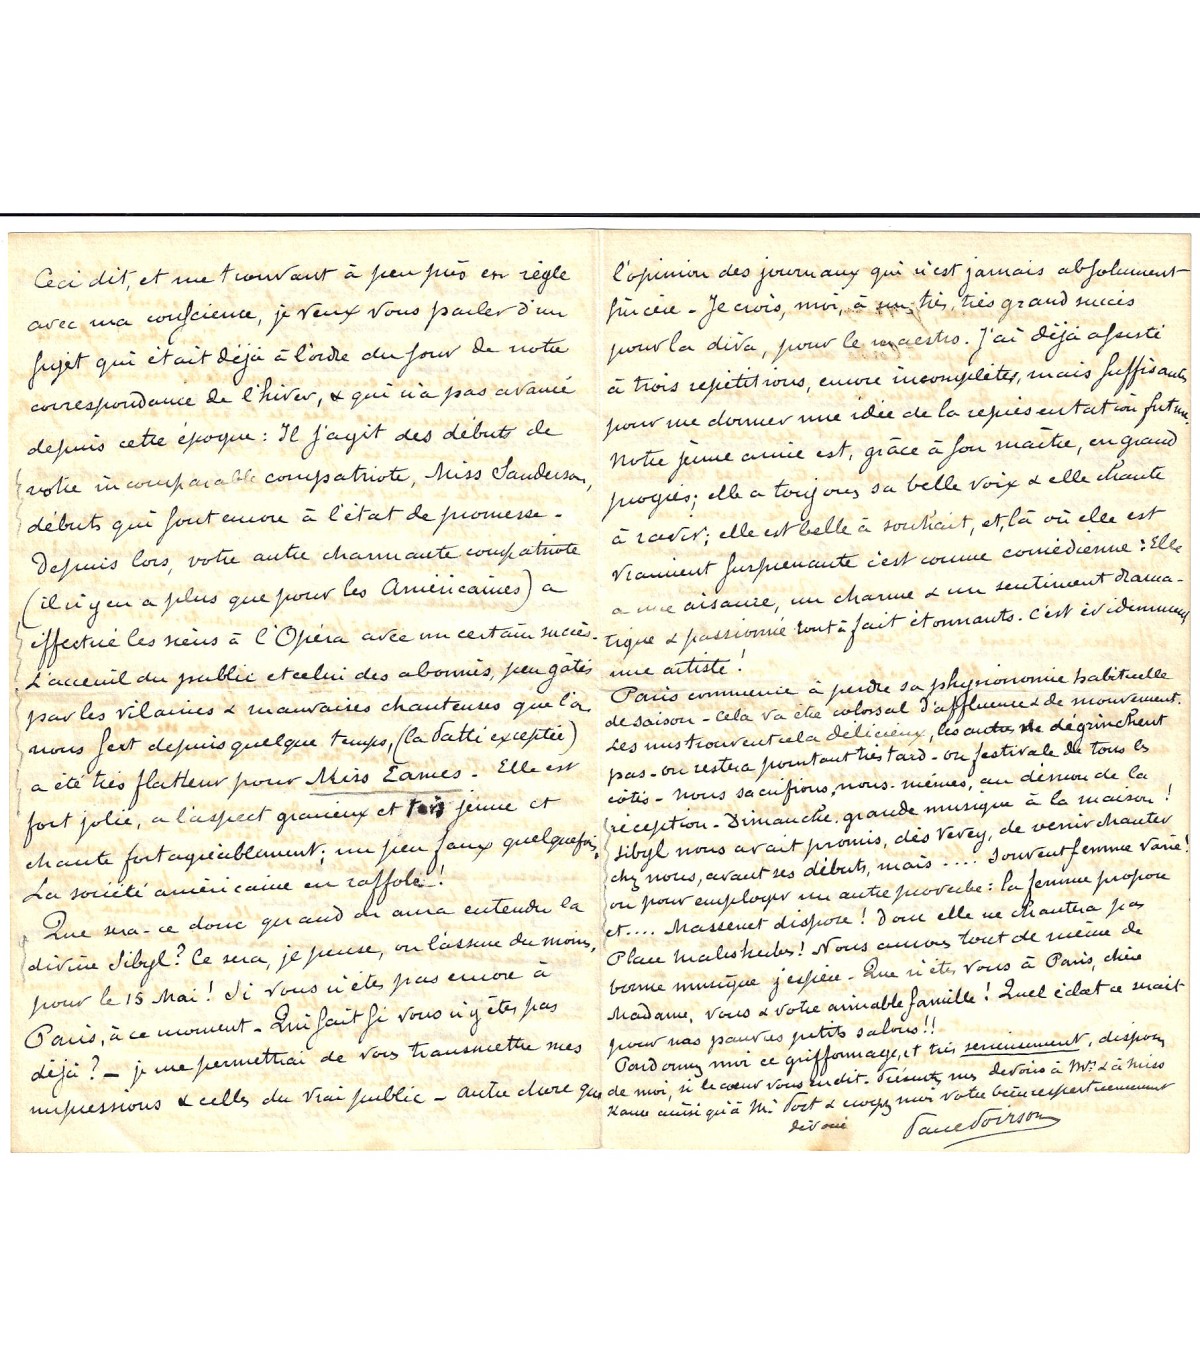 Ceci dit, et me trouvant à peu près en règle
avec ma conscience, je veux vous parler d'un
sujet qui était déjà à l'ordre du jour de notre
correspondance de l'hiver, & qui n'a pas avancé
depuis cette époque : Il s'agit des débuts de
votre incomparable compatriote, Miss Sanderson,
débuts qui sont encore à l'état de promesse -
Depuis lors, votre autre charmante compatriote
(il n'y en a plus que pour les Américaines) a
effectué les siens à l'Opéra avec un certain succès.
L'accueil du public et celui des abonnés, peu gâtés
par les vilaines & mauvaises chanteuses que l'on
nous sert depuis quelque temps, (la Patti exceptée)
a été très flatteur pour Miss Eames - Elle est
fort jolie, a l'aspect gracieux et très jeune et
chante fort agréablement; un peu faux quelquefois.
La société américaine en raffole !
Que sera-ce donc quand on aura entendu la
divine Sibyl ? Ce sera, je pense, on l'assure du moins,
pour le 15 Mai ! Si vous n'êtes pas encore à
Paris, à ce moment - Qui fait si vous n'y êtes pas
déjà ? - je me permettrai de vous transmettre mes
impressions & celles du vrai public - autre chose que
l'opinion des journaux qui n'est jamais absolument
sincère - Je crois, moi, à un très, très grand succès
pour la diva, pour le maestro. J'ai déjà assisté
à trois répétitions, encore incomplètes, mais suffisantes
pour me donner une idée de la représentation future.
Notre jeune amie est, grâce à son maître, en grand
progrès; elle a toujours sa belle voix & elle chante
à ravir; elle est belle à souhait, et, là où elle est
vraiment surprenante c'est comme comédienne : Elle
a une aisance, un charme & un sentiment drama-
tique & passionné tout à fait étonnants. C'est évidemment
une artiste !
Paris commence à perdre sa physionomie habituelle
de saison - Cela va être colossal d'affluence & de mouvement.
Les uns trouvent cela délicieux, les autres ne dégrinchent
pas - on restera pourtant très tard - on festivale de tous les
côtés - Nous sacrifions, nous-mêmes, au démon de la
réception - Dimanche, grande musique à la maison !
Sibyl nous avait promis, dès Vevey, de venir chanter
chez nous, avant ses débuts, mais .... Souvent femme varie !
ou pour employer un autre proverbe : la femme propose
et .... Massenet dispose ! Donc elle ne chantera pas
Place Malesherbes ! Nous aurons tout de même de
bonne musique j'espère - Que n'êtes vous à Paris, chère
Madame, vous & votre aimable famille ! Quel éclat ce serait
pour nos pauvres petits salons !!
Pardonnez moi ce griffonnage, et très serieusement, disposez
de moi, si le cœur vous en dit. Présentez mes devoirs à Mrs & à Miss
ainsi qu'à Mr. Post & croyez moi votre bien respectueusement
dévoué
Paul Poirson